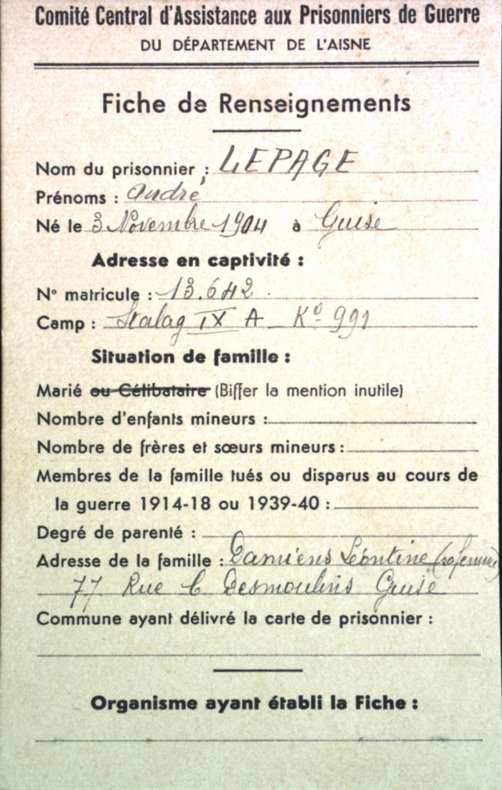 Comité Central d'Assistance aux Prisonniers de Guerre
DU DÉPARTEMENT DE L'AISNE
Fiche de Renseignements
Nom du prisonnier : LEPAGE
Prénoms : André
Né le 3 Novembre 1904 à Guise
Adresse en captivité :
N° matricule : 13.642
Camp : Stalag IX A Ko 991
Situation de famille :
Marié ou Célibataire (Biffer la mention inutile)
Nombre d'enfants mineurs :
Nombre de frères et sœurs mineurs :
Membres de la famille tués ou disparus au cours de
la guerre 1914-18 ou 1939-40 :
Degré de parenté :
Adresse de la famille : Damiens Léontine (sa femme)
77 Rue C Desmoulins Guise
Commune ayant délivré la carte de prisonnier :
Organisme ayant établi la Fiche :